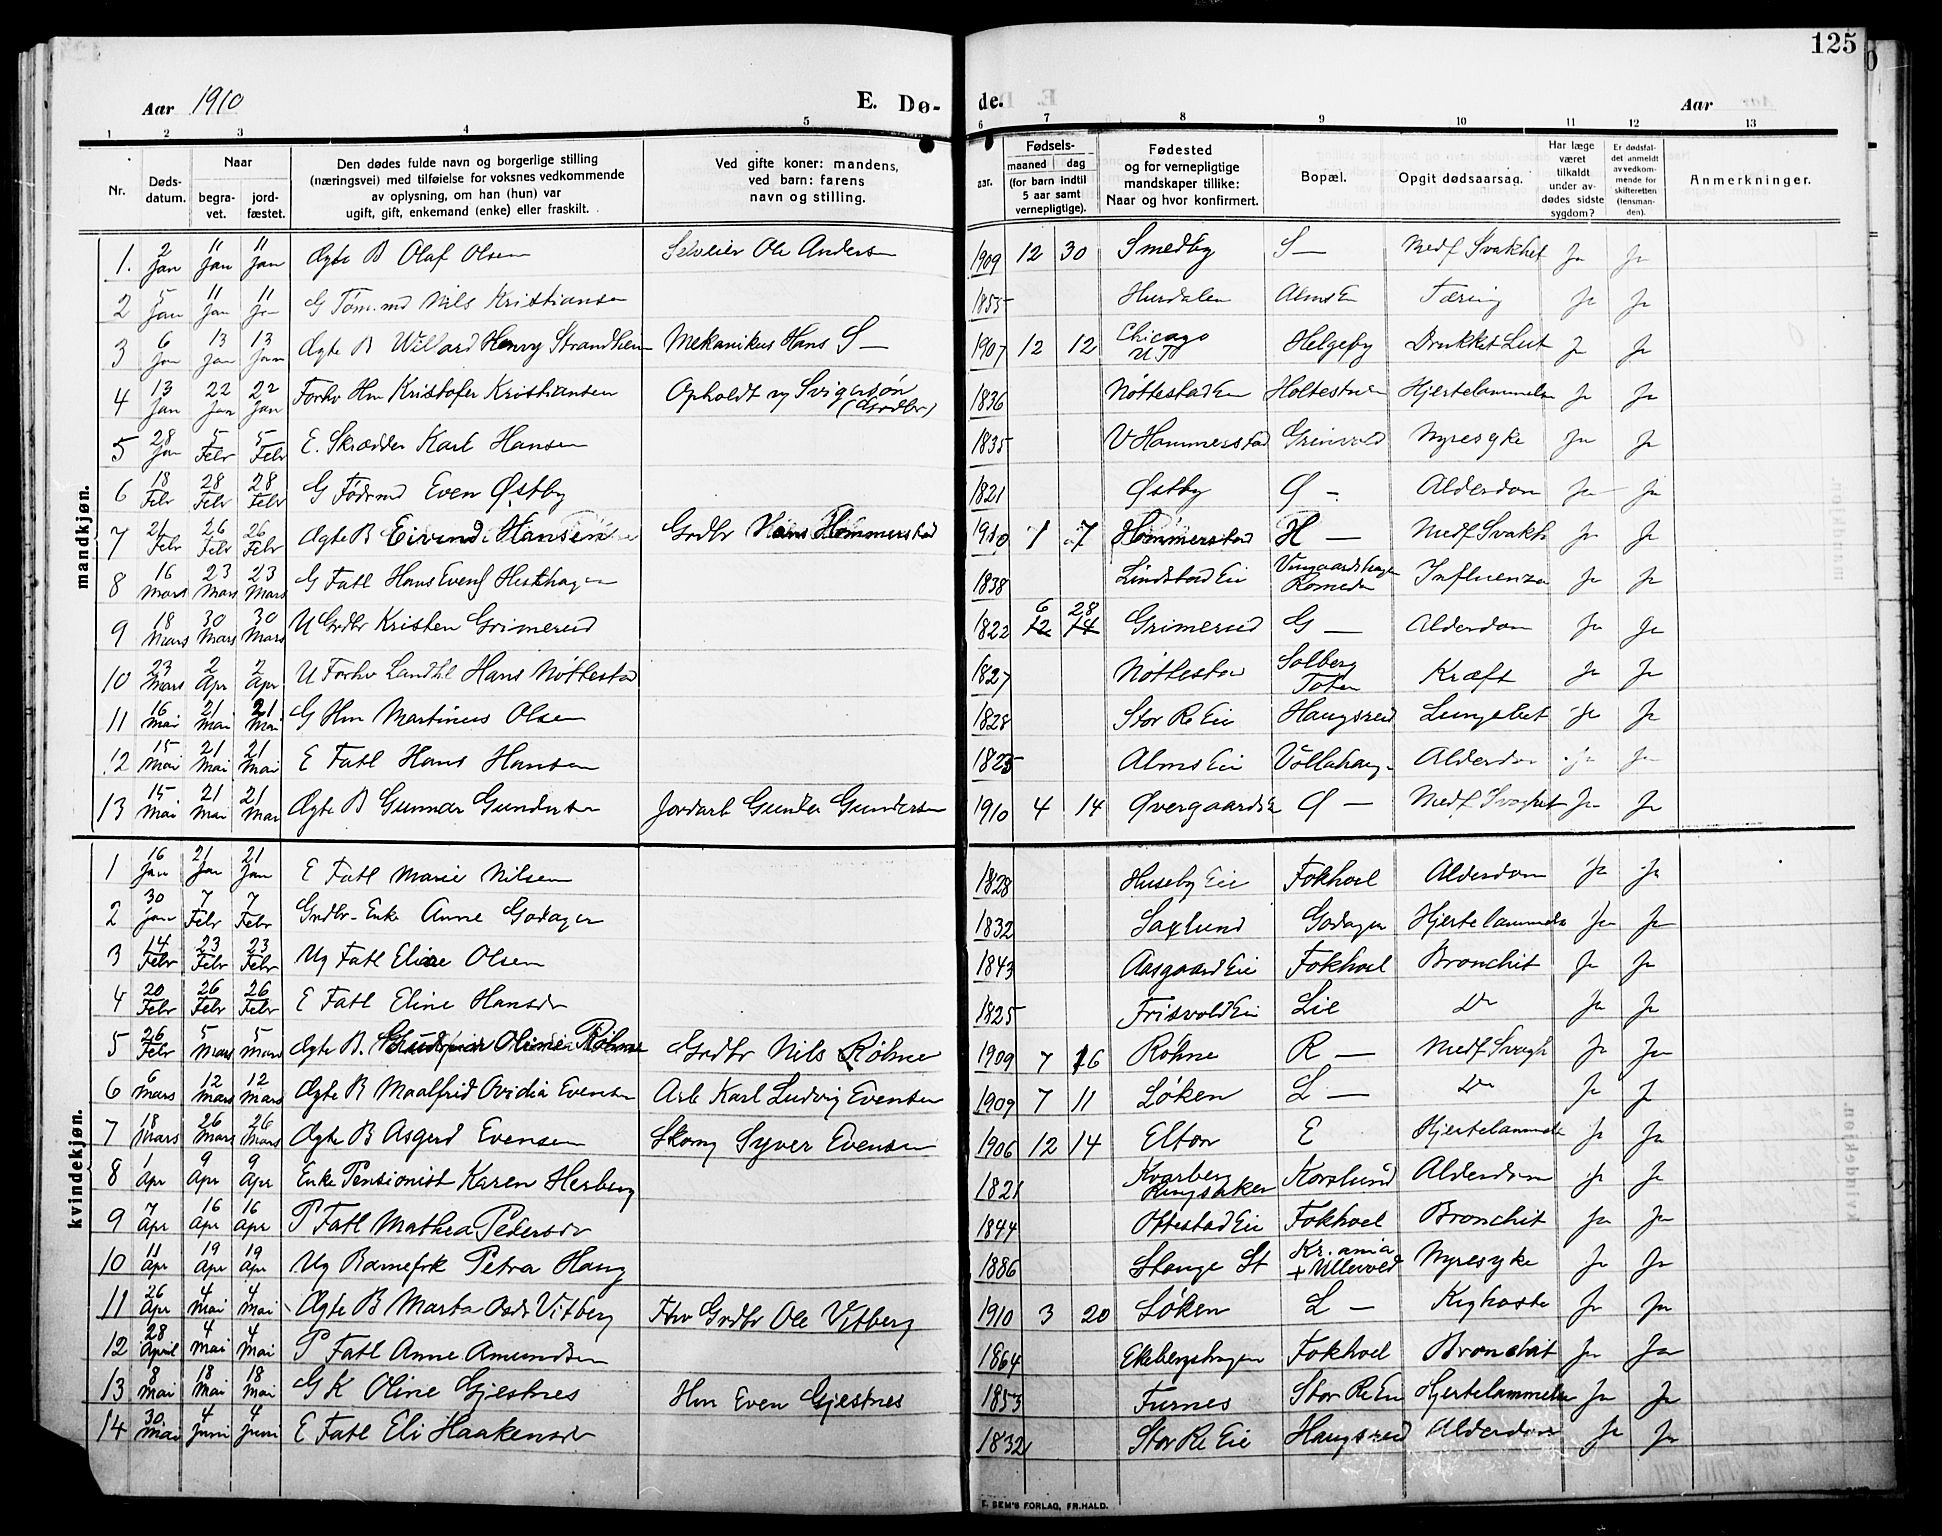 125
Aar 1910 E. Dø- de. Aar
1 2 3 4 5 6 7 8 9 10 11 12 13
Nr. Døds-datum. Naar begra-vet. jord-fæstet. Den dødes fulde navn og borgerlige stilling (næringsvei) med tilføielse for voksnes vedkommende av oplysning, om han (hun) var ugift, gift, enkemand (enke) eller fraskilt. Ved gifte koner: mandens, ved barn: farens navn og stilling. aar. Fødsels- maaned dag (for barn indtil 5 aar samt vernepligtige). Fødested og for vernepligtige mandskaper tillike: Naar og hvor konfirmert. Bopæl. Opgit dødsaarsag. Har læge været tilkaldt under av-dødes sidste sygdom? Er dødsfal-det anmeldt av vedkom-mende for skifteretten (lensman-den). Anmerkninger.
mandkjøn.
1. 2 Jan 11 Jan 11 Jan Ægte B Olaf Olsen Selveier Ole Andersen 1909 12 30 Smedby S — Medf Svakhet Ja Ja
2 5 Jan 11 Jan 11 Jan G Tøm.md Nils Kristiansen 1855 Hurdalen Alms Ei Tæring Ja Ja
3 6 Jan 13 Jan 13 Jan Ægte B Willard Henry Strandheim Mekanikus Hans S — 1907 12 12 Chicago Helgeby Drukket Lut Ja Ja
4 13 Jan 22 Jan 22 Jan Forhv Hm Kristofer Kristiansen Opholdt av Svigersøn (Grdbr) 1836 Nøttestad Ei Holtestuen Hjertelammelse Ja Ja
5 28 Jan 5 Febr 5 Febr E. Skrædder Karl Hansen 1835 V Hammerstad Grinvold Nyresyke Ja Ja
6 18 Febr 28 Febr 28 Febr G Føderaad Even Østby 1821 Østby Ø - Alderdom Ja Ja
7 21 Febr 26 Febr 26 Febr Ægte B Eivind Hansen Grdbr Hans Hommerstad 1910 1 7 Hommerstad H — Medf Svakh Ja Ja
8 16 Mars 23 Mars 23 Mars G Fatl Hans Evens Hesthagen 1838 Lindstad Ei Romedal Influenza Ja Ja
9 18 Mars 30 Mars 30 Mars U Grdbr Kristen Grimerud 1822 6 28 12 14 Grimerud G — Alderdom Ja Ja
10 23 Mars 2 Apr 2 Apr U Forhv Landhl Hans Nøttestad 1827 Nøttestad Solberg Toten Kræft Ja Ja
11 16 Mai 21 Mai 21 Mai G Hm Martinus Olsen 1828 Stor Re Eie Haugsrud Lungebet Ja Ja
12 15 Mai 21 Mai 21 Mai E Fatl Hans Hansen 1825 Alms Eie Vollahaug Alderdom Ja Ja
13 15 Mai 21 Mai 21 Mai Ægte B Gunnar Gundersen Jordarb Gunder Gundersen 1910 4 14 Øvergaards E Ø — Medf Svaghet Ja Ja
kvindekjøn.
1 16 Jan 21 Jan 21 Jan E Fatl Marie Nilsen 1828 Huseby Eie Fokhoel Alderdom Ja Ja
2 30 Jan 7 Febr 7 Febr Grdbr-Enke Anne Godager 1832 Saxlund Godager Hjertelammelse Ja Ja
3 14 Febr 23 Febr 23 Febr Ug Fatl Eline Olsen 1843 Aasgaard Eie Fokhoel Bronchit Ja Ja
4 20 Febr 26 Febr 26 Febr E Fatl Eline Hansdr 1825 Frisvold Eie Lie Do Ja Ja
5 26 Febr 5 Mars 5 Mars Ægte B. Oline Røhne Grdbr Nils Røhne 1909 7 16 Røhne R — Medf Svagh Ja Ja
6 6 Mars 12 Mars 12 Mars Ægte B Maalfrid Ovidia Evensen Arb Karl Ludvig Evensen 1909 7 11 Løken L — Do Ja Ja
7 18 Mars 26 Mars 26 Mars Ægte B Asgerd Evensen Skom Syver Evensen 1906 12 14 Elton E Hjertelammelse Ja Ja
8 1 Apr 9 Apr 9 Apr Enke Pensionist Karen Herberg 1821 Kvarberg Ringsaker Korslund Alderdom Ja Ja
9 7 Apr 16 Apr 16 Apr P Fatl Mathea Pedersdr 1844 Oftestad Eie Fokhoel Bronchit Ja Ja
10 11 Apr 19 Apr 19 Apr Ug Barnefrk Petra Haug 1886 Stange St Kr.ania + Ullevold Nyresyke Ja Ja
11 26 Apr 4 Mai 4 Mai Ægte B Marta Osdr Vitberg Fhv Grdbr Ole Vitberg 1910 3 20 Løken L — Kighoste Ja Ja
12 28 April 4 Mai 4 Mai P Fatl Anne Amundsen 1864 Ekebergshagen Fokhoel Bronchit Ja Ja
13 8 Mai 18 Mai 18 Mai G K Oline Gjestnes Hm Even Gjestnes 1853 Furnes Stor Re Ei Hjertelammelse Ja Ja
14 30 Mai 4 Juni 4 Juni E Fatl Eli Haakensdr 1832 Stor Re Eie Haugsrud Alderdom Ja Ja
E. SEM'S FORLAG, FR.HALD.